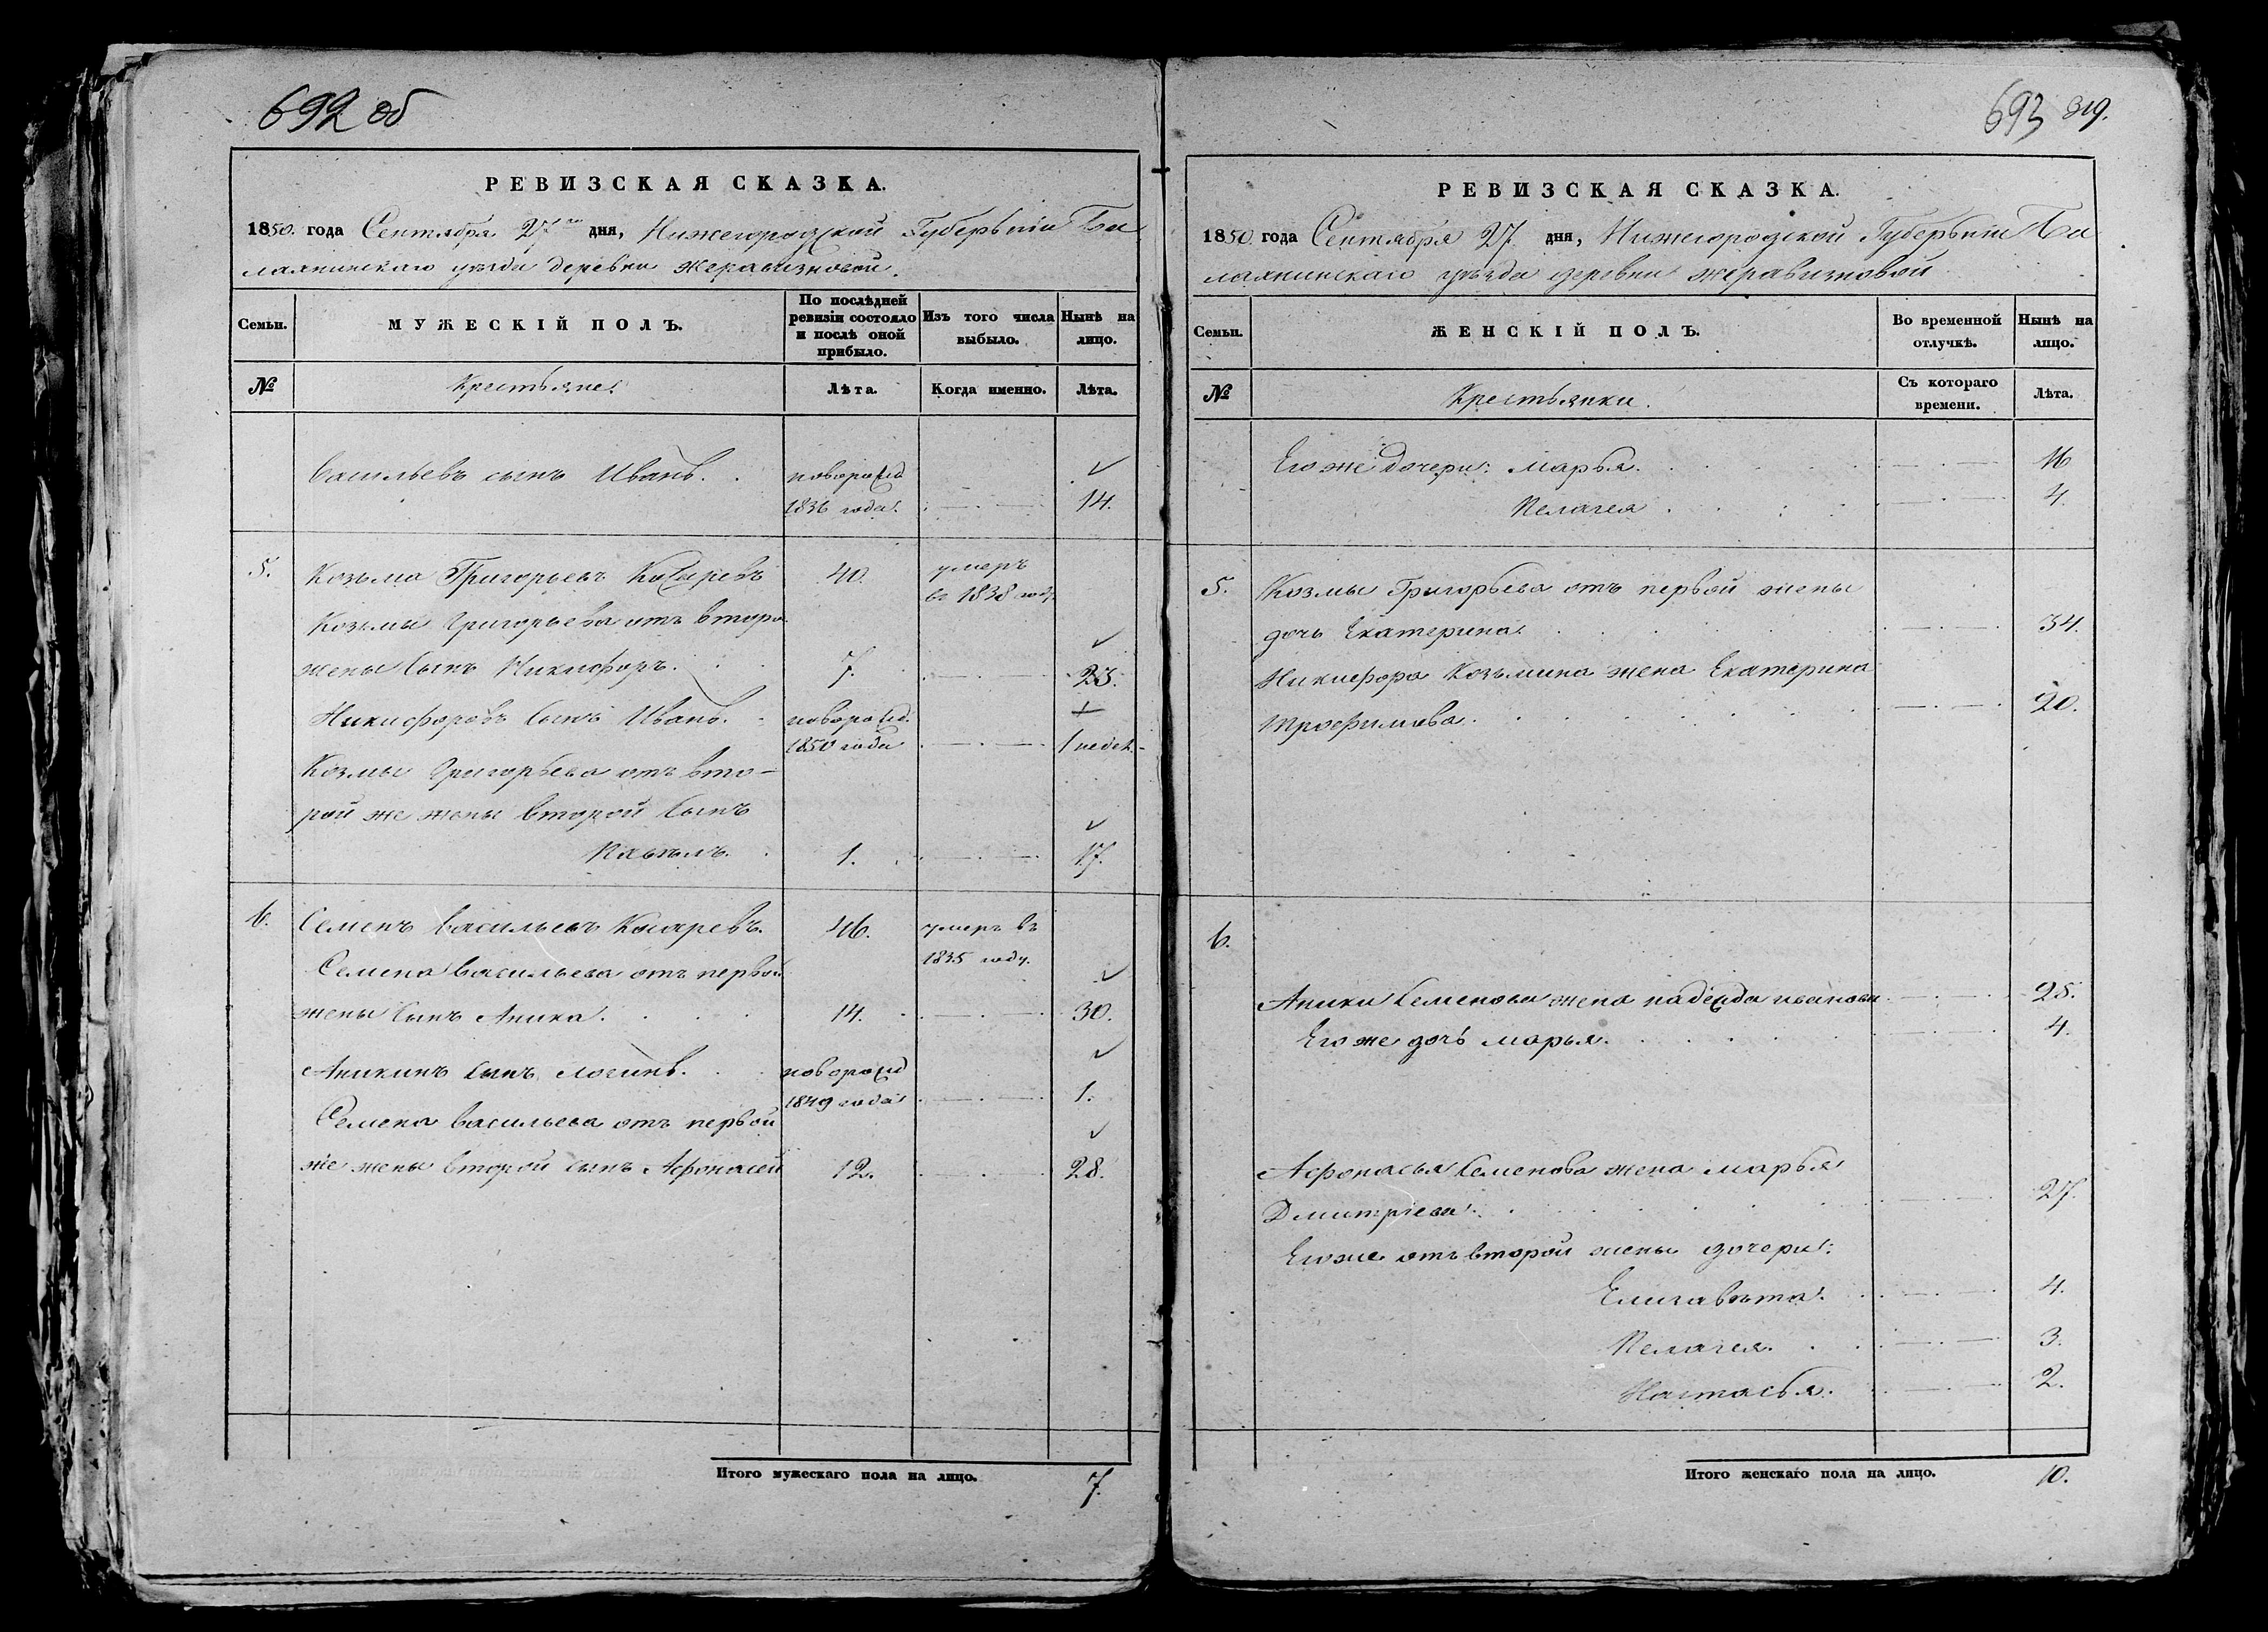 692 об
РЕВИЗСКАЯ СКАЗКА.
1850. года Сентября 27го дня, Нижегородской Губерьніи Ба
лахнинскаго уезда деревни
Семьи. МУЖЕСКІЙ ПОЛЪ. По послѣдней ревизіи состояло и послѣ оной прибыло. Изъ того числа выбыло. Нынѣ на лицо.
№ Крестьяне. Лѣта. Когда именно. Лѣта.
Васильевъ сынъ Иванъ. новорожд
1836 года. 14.
5. Козьма Григорьевъ 40. умеръ
въ 1838 году
Козмы Григорьева отъ второй
жены сынъ Никифоръ. 7. 23.
Никифоровъ сынъ Иванъ. новорожд.
1850 года 1 недел.
Козмы Григорьева отъ вто-
рой же жены второй сынъ
1. 17.
6. Семенъ Васильевъ Косаревъ. 46. умеръ въ
1835 году.
Семена Васильева отъ первой
жены сынъ Аника. 14. 30.
Аникинъ сынъ Логинъ. новорожд
1849 года 1.
Семена Васильева отъ первой
же жены второй сынъ Афонасей 12. 28.
Итого мужескаго пола на лицо. 7.
693 319.
РЕВИЗСКАЯ СКАЗКА.
1850 года Сентября 27 дня, Нижегородской Губерьніи Ба
лахнинскаго уѣзда деревни
Семьи. ЖЕНСКІЙ ПОЛЪ. Во временной отлучкѣ. Нынѣ на лицо.
№ Крестьянки. Съ котораго времени. Лѣта.
Его же дочери: Марья. 16
Пелагея 4.
5. Козмы Григорьева отъ первой жены
дочь Екатерина. 34.
Никифора Козьмина жена Екатерина
Трофимова. 20.
6.
Аники Семенова жена Надежда Иванова 25.
Его же дочь Марья. 4.
Афонасья Семенова жена Марья
Дмитріева. 27.
Его же отъ второй жены дочери:
Елизавѣта. 4.
Пелагея. 3.
Настасья. 2.
Итого женскаго пола на лицо. 10.